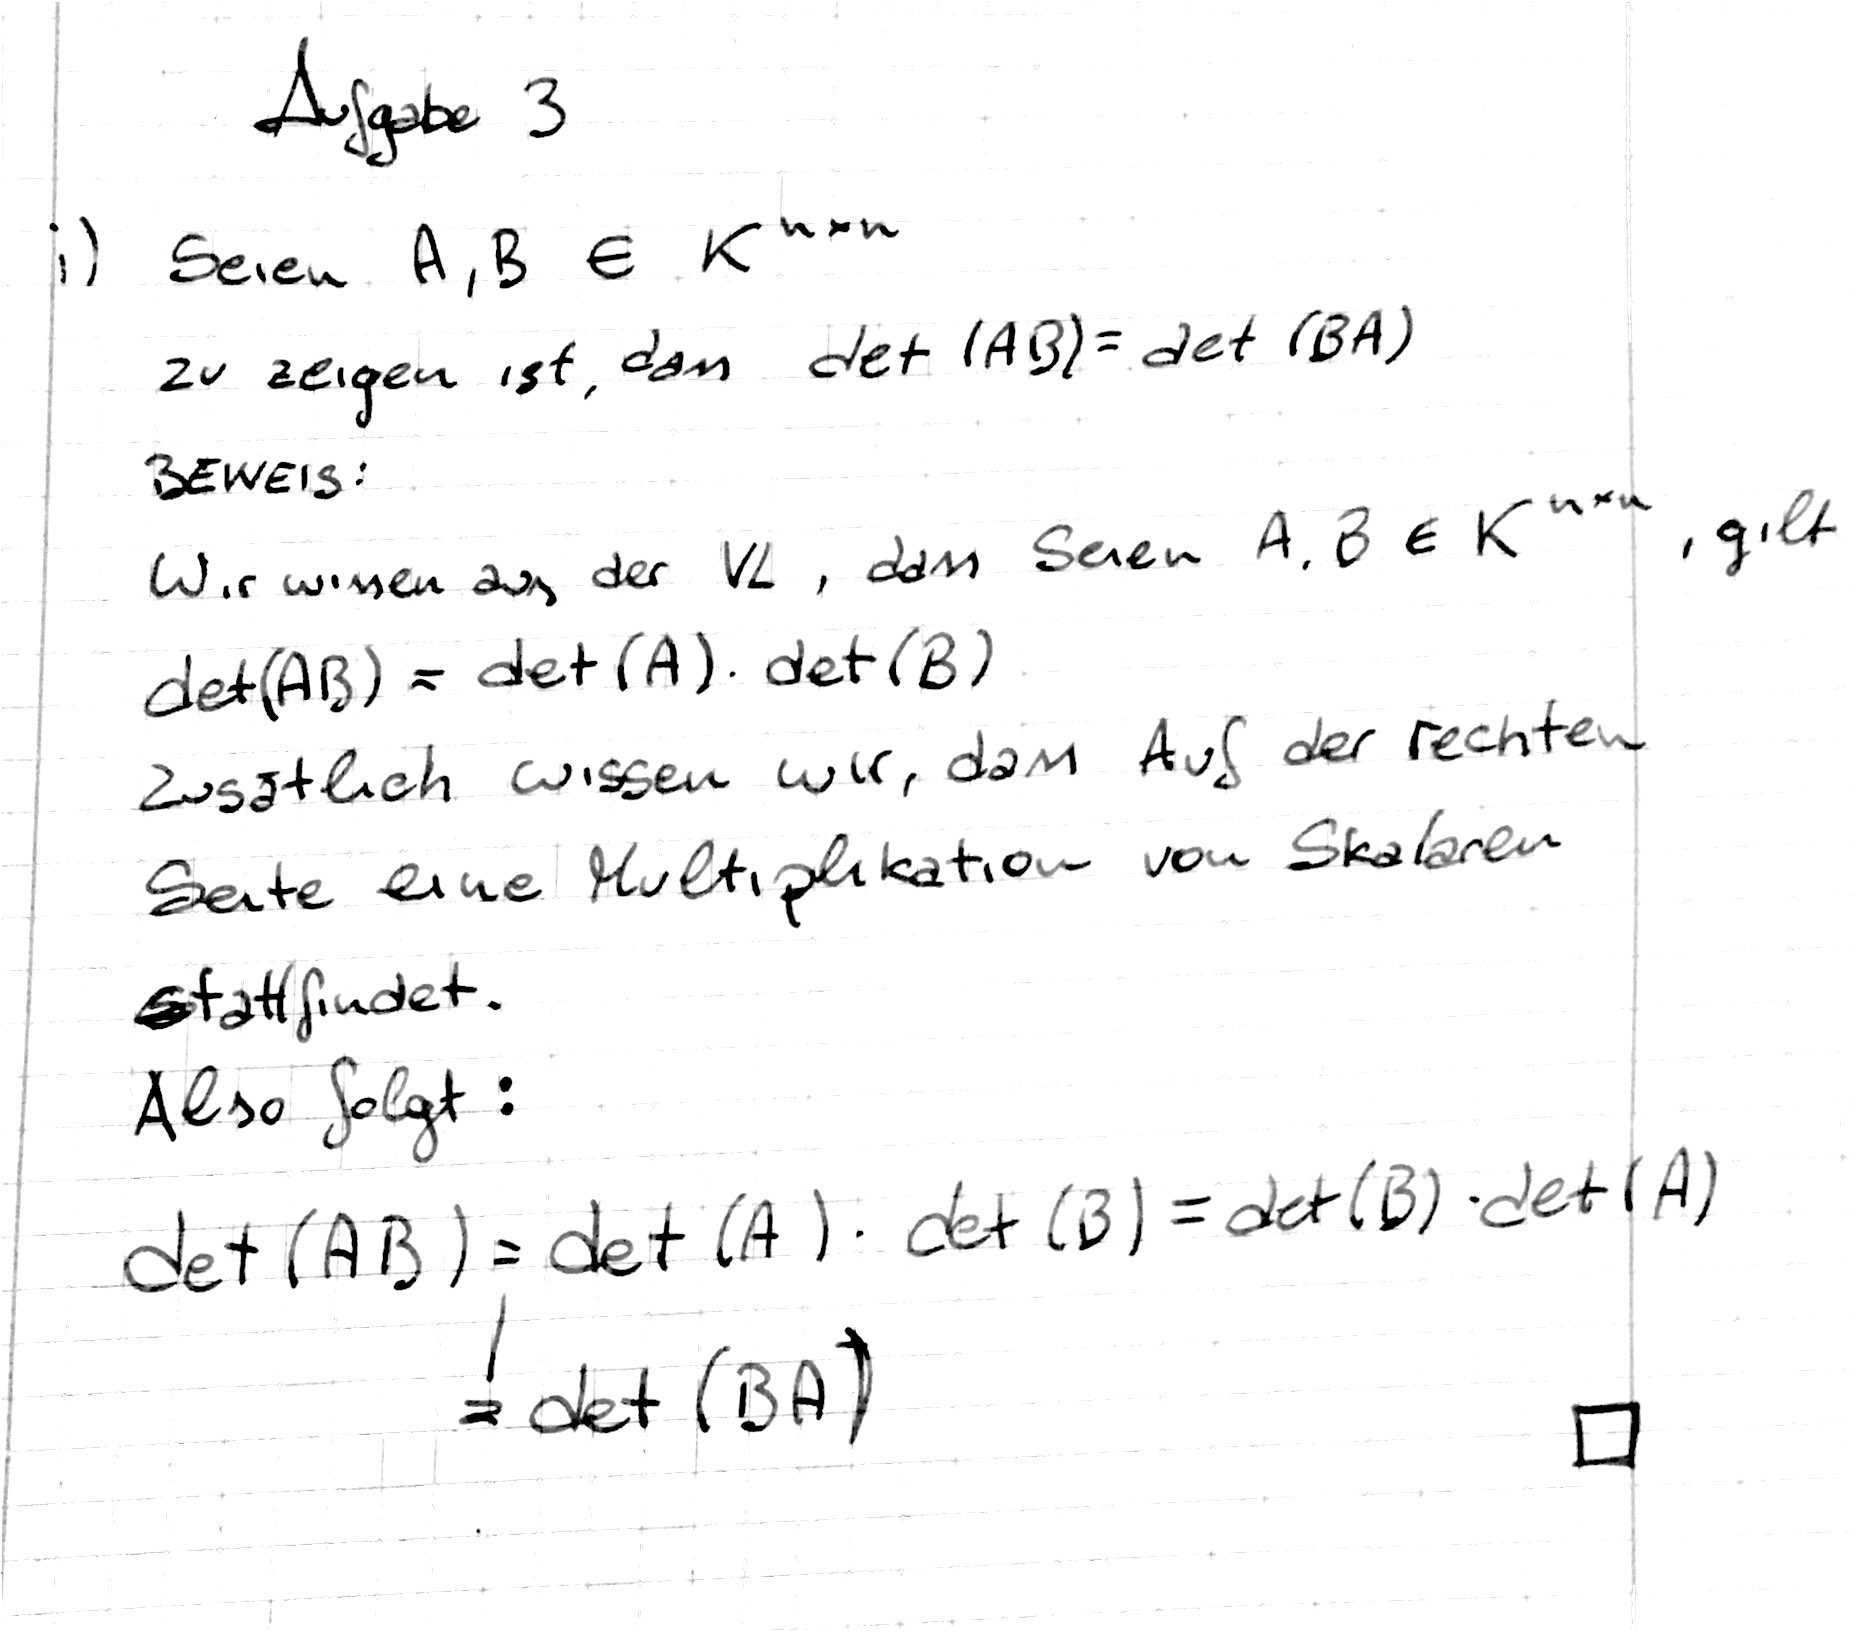 Aufgabe 3
i) Seien A, B ∈ K^{n×n}
zu zeigen ist, dass det (AB) = det (BA)
BEWEIS:
Wir wissen aus der VL, dass Seien A, B ∈ K^{n×n}, gilt
det(AB) = det(A) · det(B)
Zusätlich wissen wir, dass Auf der rechten
Seite eine Multiplikation von Skalaren
stattfindet.
Also folgt:
det (AB) = det (A) · det (B) = det (B) · det (A)
= det (BA)
□